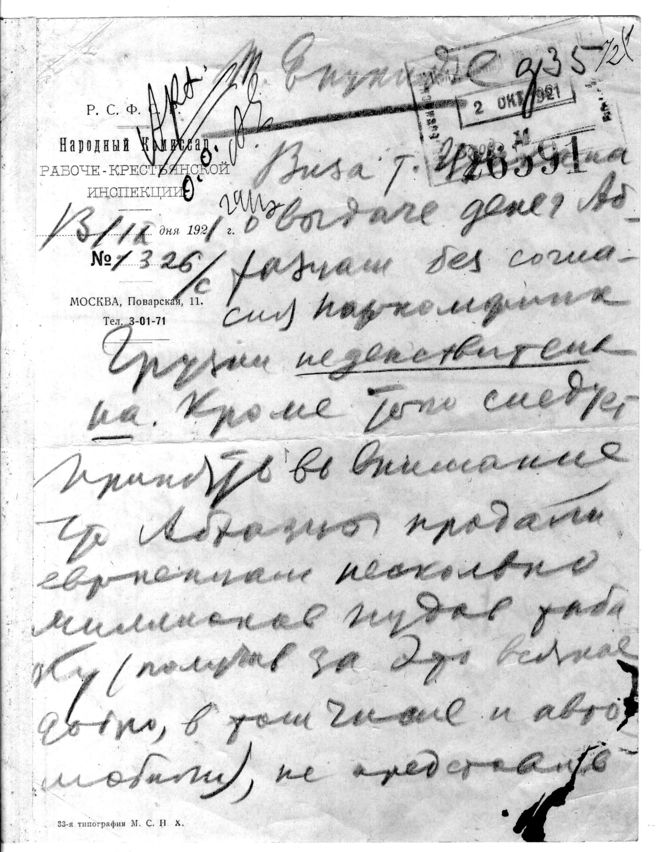 т. Енукидзе
2 ОКТ 1921
26591
Р. С. Ф. С. Р.
Народный Комиссар
РАБОЧЕ-КРЕСТЬЯНСКОЙ
ИНСПЕКЦИИ
13/IX дня 1921 г.
№ 1326/с
МОСКВА, Поварская, 11.
Тел. 3-01-71
Виза т.
о выдаче денег Аб-
хазцам без согла-
сия наркомфина
Грузии недействитель-
на. Кроме того следует
принять во внимание
что Абхазцы продали
европейцам несколько
миллионов пудов таба
ку (получив за это всякое
добро, в том числе и авто
мобили), не представив
33-я типография М. С. Н. Х.